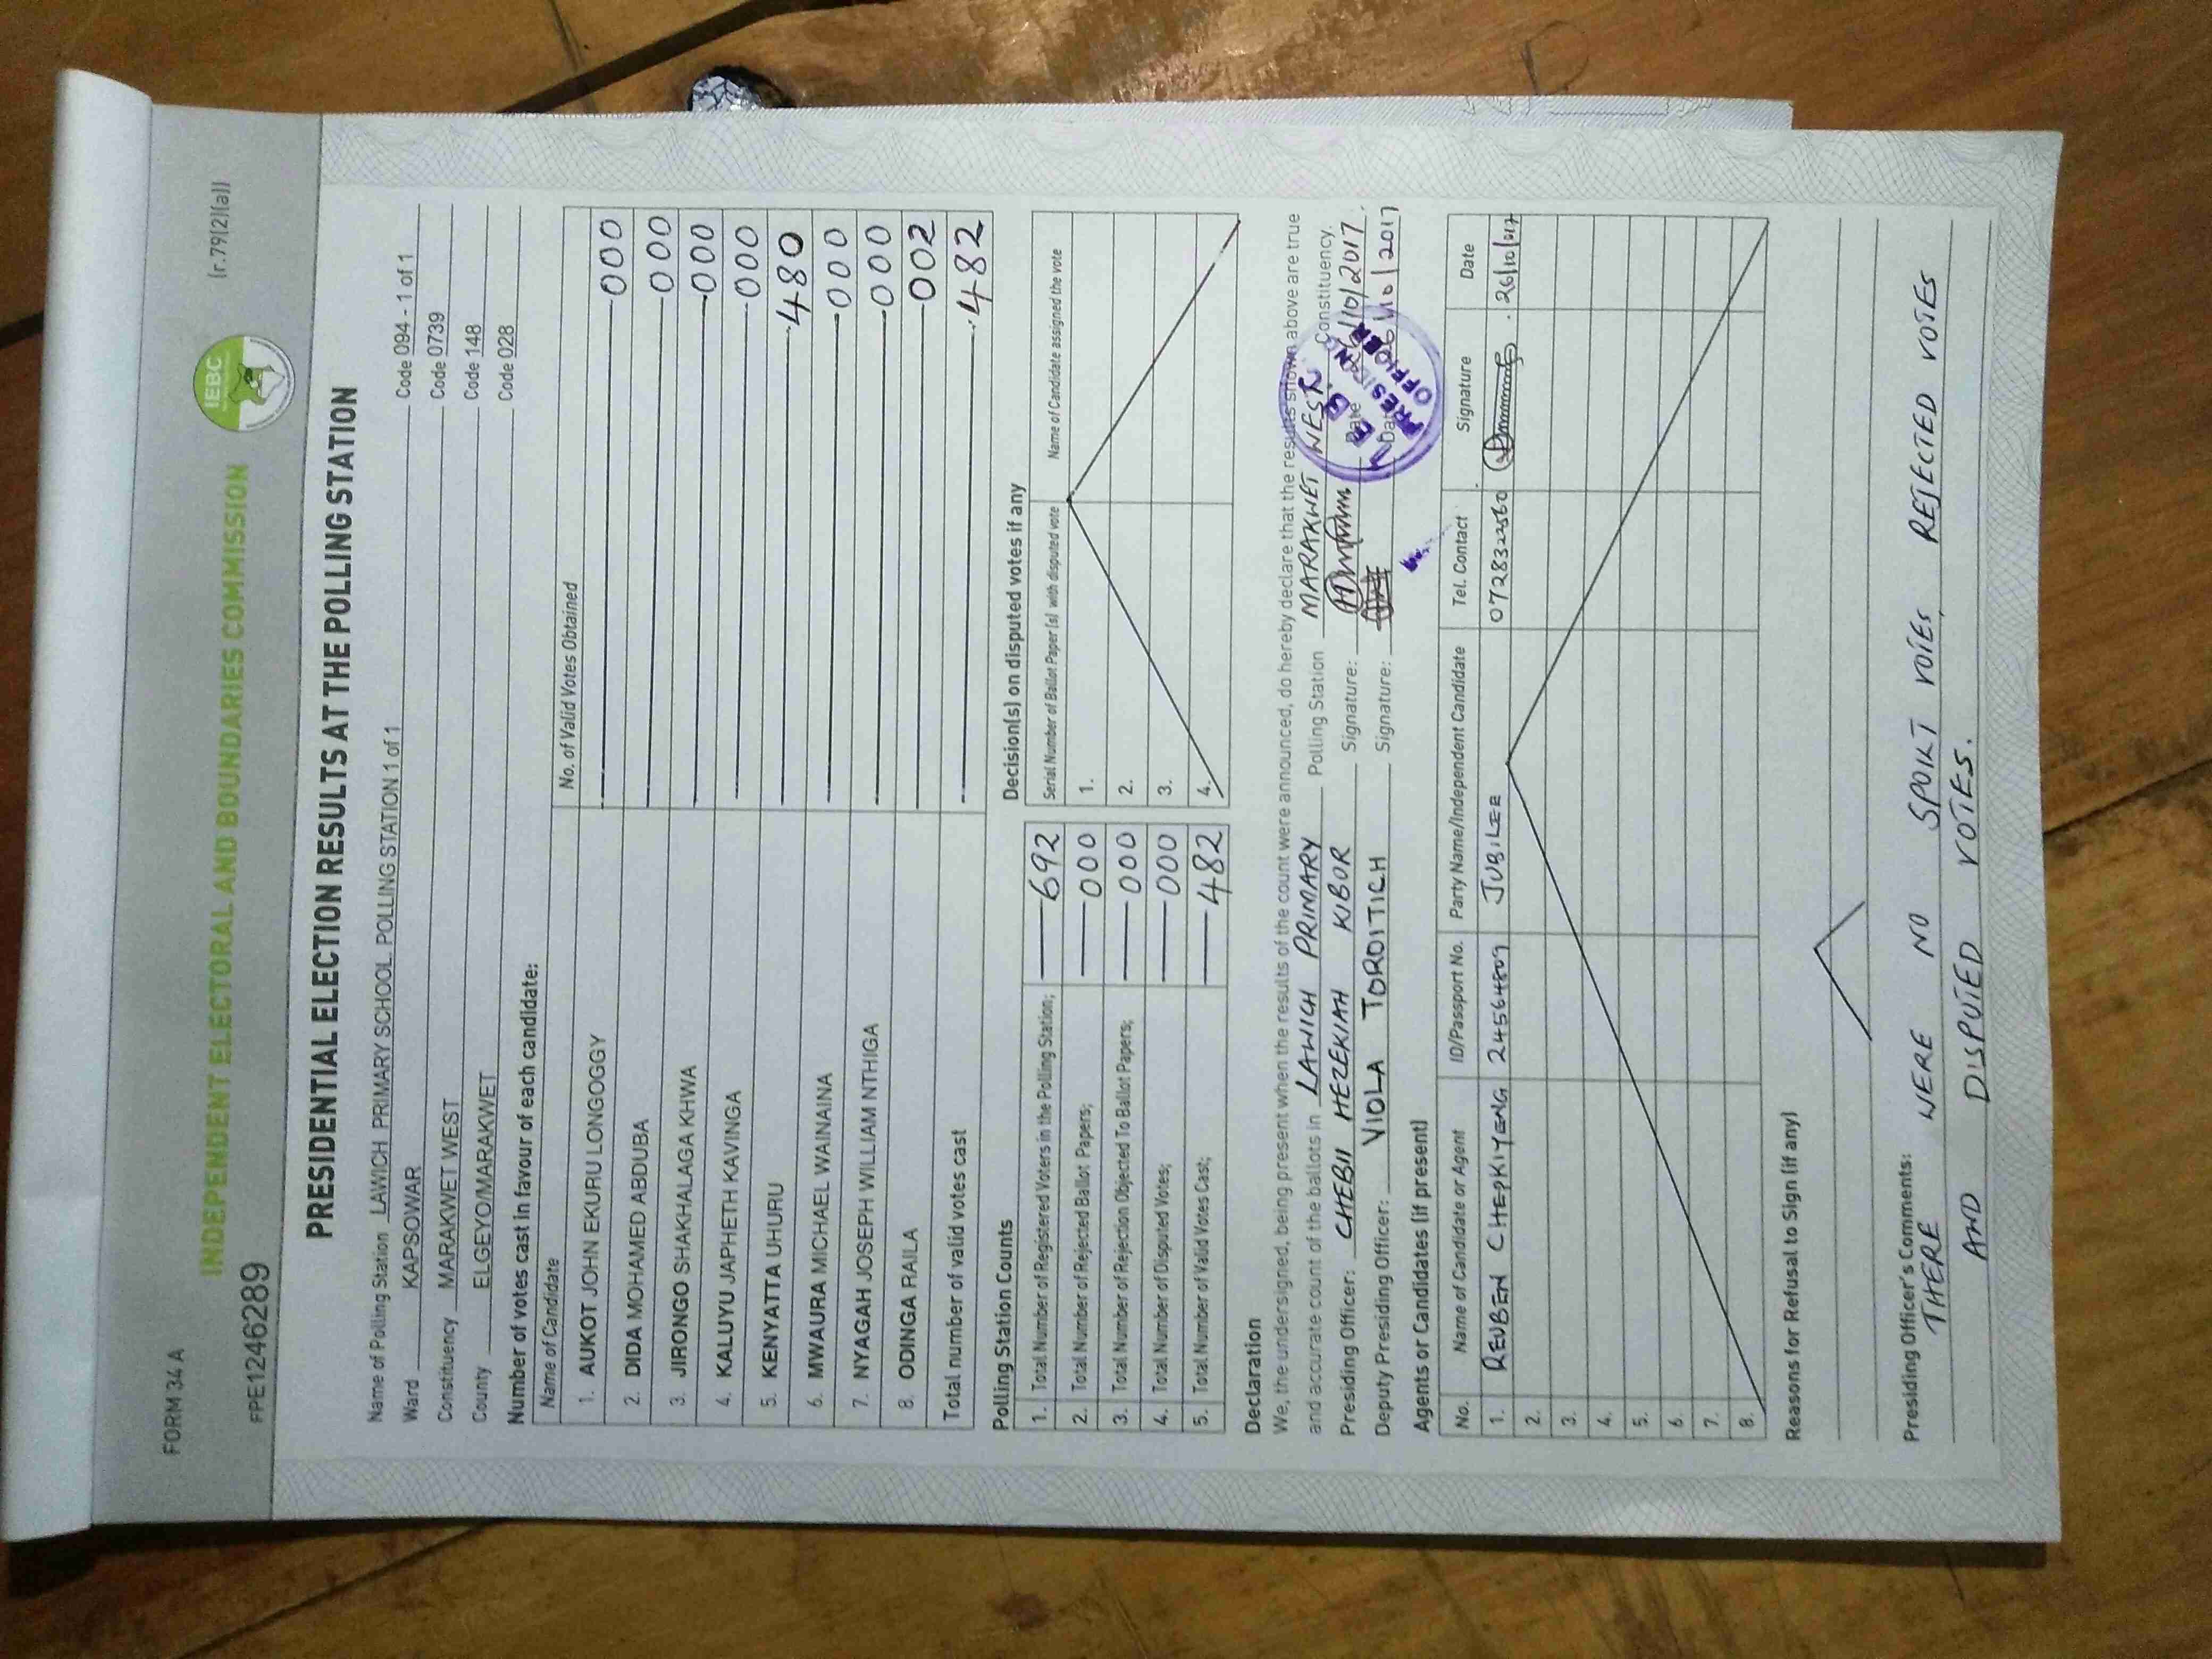 FORM 34 A
(r.79(2)(a))
IEBC
INDEPENDENT ELECTORAL AND BOUNDARIES COMMISSION
FPE1246289
PRESIDENTIAL ELECTION RESULTS AT THE POLLING STATION
Name of Polling Station LAWICH PRIMARY SCHOOL POLLING STATION 1 of 1 Code 094 - 1 of 1
Ward KAPSOWAR Code 0739
Constituency MARAKWET WEST Code 148
County ELGEYO/MARAKWET Code 028
Number of votes cast in favour of each candidate:
Name of Candidate No. of Valid Votes Obtained
1. AUKOT JOHN EKURU LONGOGGY 000
2. DIDA MOHAMED ABDUBA 000
3. JIRONGO SHAKHALAGA KHWA 000
4. KALUYU JAPHETH KAVINGA 000
5. KENYATTA UHURU 480
6. MWAURA MICHAEL WAINAINA 000
7. NYAGAH JOSEPH WILLIAM NTHIGA 000
8. ODINGA RAILA 002
Total number of valid votes cast 482
Polling Station Counts
1. Total Number of Registered Voters in the Polling Station; 692
2. Total Number of Rejected Ballot Papers; 000
3. Total Number of Rejection Objected To Ballot Papers; 000
4. Total Number of Disputed Votes; 000
5. Total Number of Valid Votes Cast; 482
Decision(s) on disputed votes if any
Serial Number of Ballot Paper (s) with disputed vote Name of Candidate assigned the vote
1.
2.
3.
4.
Declaration
We, the undersigned, being present when the results of the count were announced, do hereby declare that the results shown above are true
and accurate count of the ballots in LAWICH PRIMARY Polling Station MARAKWET WEST Constituency.
Presiding Officer: CHEBII HEZEKIAH KIBOR Signature: Date 26/10/2017.
Deputy Presiding Officer: VIOLA TOROITICH Signature: Date 26/10/2017
PRESIDING
OFFICER
Agents or Candidates (if present)
No. Name of Candidate or Agent ID/Passport No. Party Name/Independent Candidate Tel. Contact Signature Date
1. REUBEN CHEPKIYENG 24564809 JUBILEE 0728322560 26/10/017
2.
3.
4.
5.
6.
7.
8.
Reasons for Refusal to Sign (if any)
Presiding Officer's Comments:
THERE WERE NO SPOILT VOTES, REJECTED VOTES
AND DISPUTED VOTES.